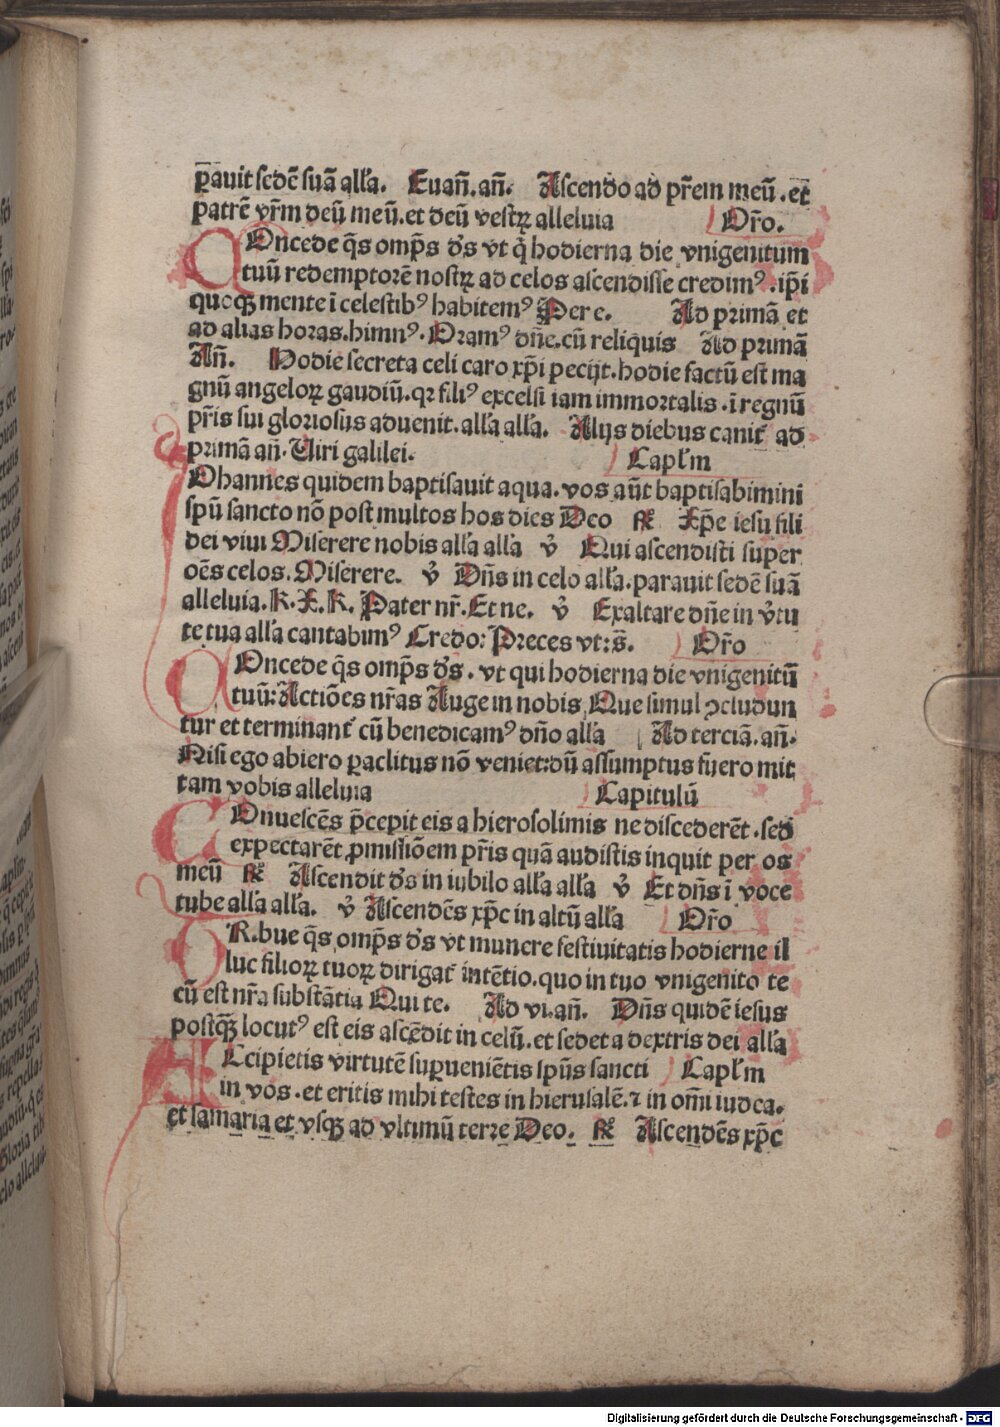 ꝑauit sedē suā all'a. Euan̄. an̄. Ascendo ad pr̄em meū. et
patrē vr̄m deū meū. et deū vestrꝝ alleluia Or̄o.
COncede q̄s omp̄s d's vt q̇ hodierna die vnigenitum
tuū redemptorē nostrꝝ ad celos ascendisse credimꝰ. ip̄i
quoqꝫ mente ī celestibꝰ habitemꝰ Per e. Ad primā et
ad alias horas. himnꝰ. Oramꝰ dn̄e. cū reliquis Ad primā
An̄. Hodie secreta celi caro xp̄i pecijt. hodie factū est ma
gnū angelorꝝ gaudiū. qꝛ filiꝰ excelsi iam immortalis. ī regnū
pr̄is sui gloriosus aduenit. all'a all'a. Alijs diebus canit' ad
primā an̄. Uiri galilei. Capl'm
IOhannes quidem baptisauit aqua. vos aūt baptisabimini
sp̄u sancto nō post multos hos dies Deo ꝶ Xp̄e iesu fili
dei viui Miserere nobis all'a all'a v̇ Qui ascendisti super
oēs celos. Miserere. v̇ Dn̄s in celo all'a. parauit sedē suā
alleluia. K. X. K. Pater nr̄. Et ne. v̇ Exaltare dn̄e in v̇tu
te tua all'a cantabimꝰ Credo: Preces vt: s̄. Or̄o
COncede q̄s omp̄s d's. vt qui hodierna die vnigenitū
tuū: Actiōes nr̄as Auge in nobis Que simul ꝯcludun
tur et terminant' cū benedicamꝰ dn̄o all'a Ad terciā. an̄.
Nisi ego abiero ꝑaclitus nō veniet: dū assumptus fuero mit
tam vobis alleluia Capitulū
COnuescēs p̄cepit eis a hierosolimis ne discederēt. sed
expectarēt ꝓmissiōem pr̄is quā audistis inquit per os
meū ꝶ Ascendit d's in iubilo all'a all'a v̇ Et dn̄s ī voce
tube all'a all'a. v̇ Ascendēs xp̄c in altū all'a Or̄o
TR. bue q̄s omp̄s d's vt munere festiuitatis hodierne il
luc filiorꝝ tuorꝝ dirigat' intētio. quo in tuo vnigenito te
cū est nr̄a substātia Qui te. Ad vi. an̄. Dn̄s quidē iesus
postqꝫ locutꝰ est eis ascēdit in celū. et sedet a dextris dei all'a
ACcipietis virtutē suꝑueniētis sp̄us sancti Capl'm
in vos. et eritis mihi testes in hierusalē. ⁊ in om̄i iudea.
et samaria et vsqꝫ ad vltimū terre Deo. ꝶ Ascendēs xp̄c
Digitalisierung gefördert durch die Deutsche Forschungsgemeinschaft - DFG